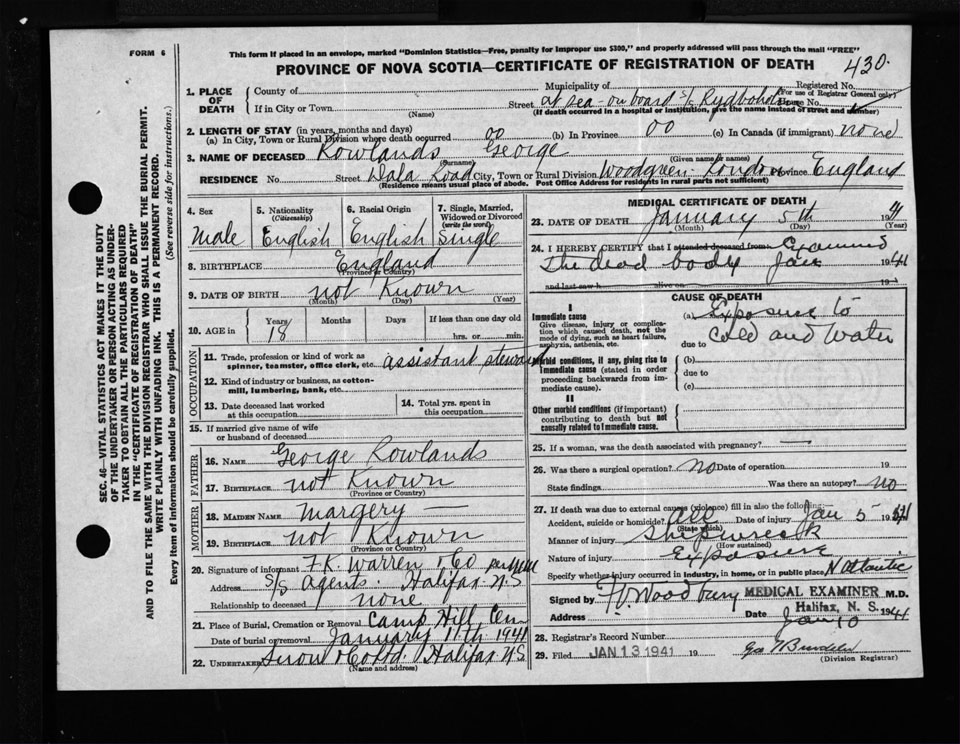 FORM 6
This form if placed in an envelope, marked "Dominion Statistics—Free, penalty for improper use $300," and properly addressed will pass through the mail "FREE"
PROVINCE OF NOVA SCOTIA—CERTIFICATE OF REGISTRATION OF DEATH
430.
SEC. 46—VITAL STATISTICS ACT MAKES IT THE DUTY
OF THE UNDERTAKER OR PERSON ACTING AS UNDER-
TAKER TO OBTAIN ALL THE PARTICULARS REQUIRED
IN THE "CERTIFICATE OF REGISTRATION OF DEATH"
AND TO FILE THE SAME WITH THE DIVISION REGISTRAR WHO SHALL ISSUE THE BURIAL PERMIT.
WRITE PLAINLY WITH UNFADING INK. THIS IS A PERMANENT RECORD.
Every item of information should be carefully supplied. (See reverse side for instructions.)
1. PLACE OF DEATH
County of
Municipality of
Registered No.
(For use of Registrar General only)
If in City or Town
(Name)
Street at sea - on board s/s Rydboholm
No.
(If death occurred in a hospital or institution, give the name instead of street and number)
2. LENGTH OF STAY (in years, months and days)
(a) In City, Town or Rural Division where death occurred 00 (b) In Province 00 (c) In Canada (if immigrant) none
3. NAME OF DECEASED Rowlands George
(Surname) (Given name or names)
RESIDENCE No. Street Dala Road City, Town or Rural Division Woodgreen London Province England
(Residence means usual place of abode. Post Office Address for residents in rural parts not sufficient)
4. Sex
Male
5. Nationality (Citizenship)
English
6. Racial Origin
English
7. Single, Married, Widowed or Divorced (write the word)
Single
8. BIRTHPLACE England
(Province or Country)
9. DATE OF BIRTH not Known
(Month) (Day) (Year)
10. AGE in Years Months Days If less than one day
18 hrs. or min.
OCCUPATION
11. Trade, profession or kind of work as
spinner, teamster, office clerk, etc. assistant steward
12. Kind of industry or business, as cotton-
mill, lumbering, bank, etc.
13. Date deceased last worked
at this occupation
14. Total yrs. spent in
this occupation
15. If married give name of wife
or husband of deceased
FATHER
16. NAME George Rowlands
17. BIRTHPLACE not Known
(Province or Country)
MOTHER
18. MAIDEN NAME Margery —
19. BIRTHPLACE not Known
(Province or Country)
20. Signature of informant F.K. Warren & Co
Address S/S Agents. Halifax N.S
Relationship to deceased none
21. Place of Burial, Cremation or Removal Camp Hill Cem
Date of burial or removal January 11th 1941
22. Undertaker Snow & Co Ltd. Halifax N.S.
(Name and address)
MEDICAL CERTIFICATE OF DEATH
23. DATE OF DEATH January 5th 1941
(Month) (Day) (Year)
24. I HEREBY CERTIFY that I attended deceased from Examined
the dead body Jan 1941
and last saw h alive on 19
CAUSE OF DEATH
I
Immediate cause
Give disease, injury or complica-
tion which caused death, not the
mode of dying, such as heart failure,
asphyxia, asthenia, etc.
(a) Exposure to
due to cold and water
Morbid conditions, if any, giving rise to
Immediate cause (stated in order
proceeding backwards from im-
mediate cause).
(b)
due to
(c)
II
Other morbid conditions (if important)
contributing to death but not
causally related to Immediate cause.
25. If a woman, was the death associated with pregnancy? —
26. Was there a surgical operation? no Date of operation 19
State findings Was there an autopsy? no
27. If death was due to external causes (violence) fill in also the following:—
Accident, suicide or homicide? acc Date of injury Jan 5 1941
(State which)
Manner of injury shipwreck
(How sustained)
Nature of injury Exposure
Specify whether injury occurred in industry, in home, or in public place N Atlantic
Signed by H. Woodbury MEDICAL EXAMINER M.D.
Halifax, N. S.
Date Jan 10 1941
28. Registrar's Record Number
29. Filed JAN 13 1941 19
(Division Registrar)